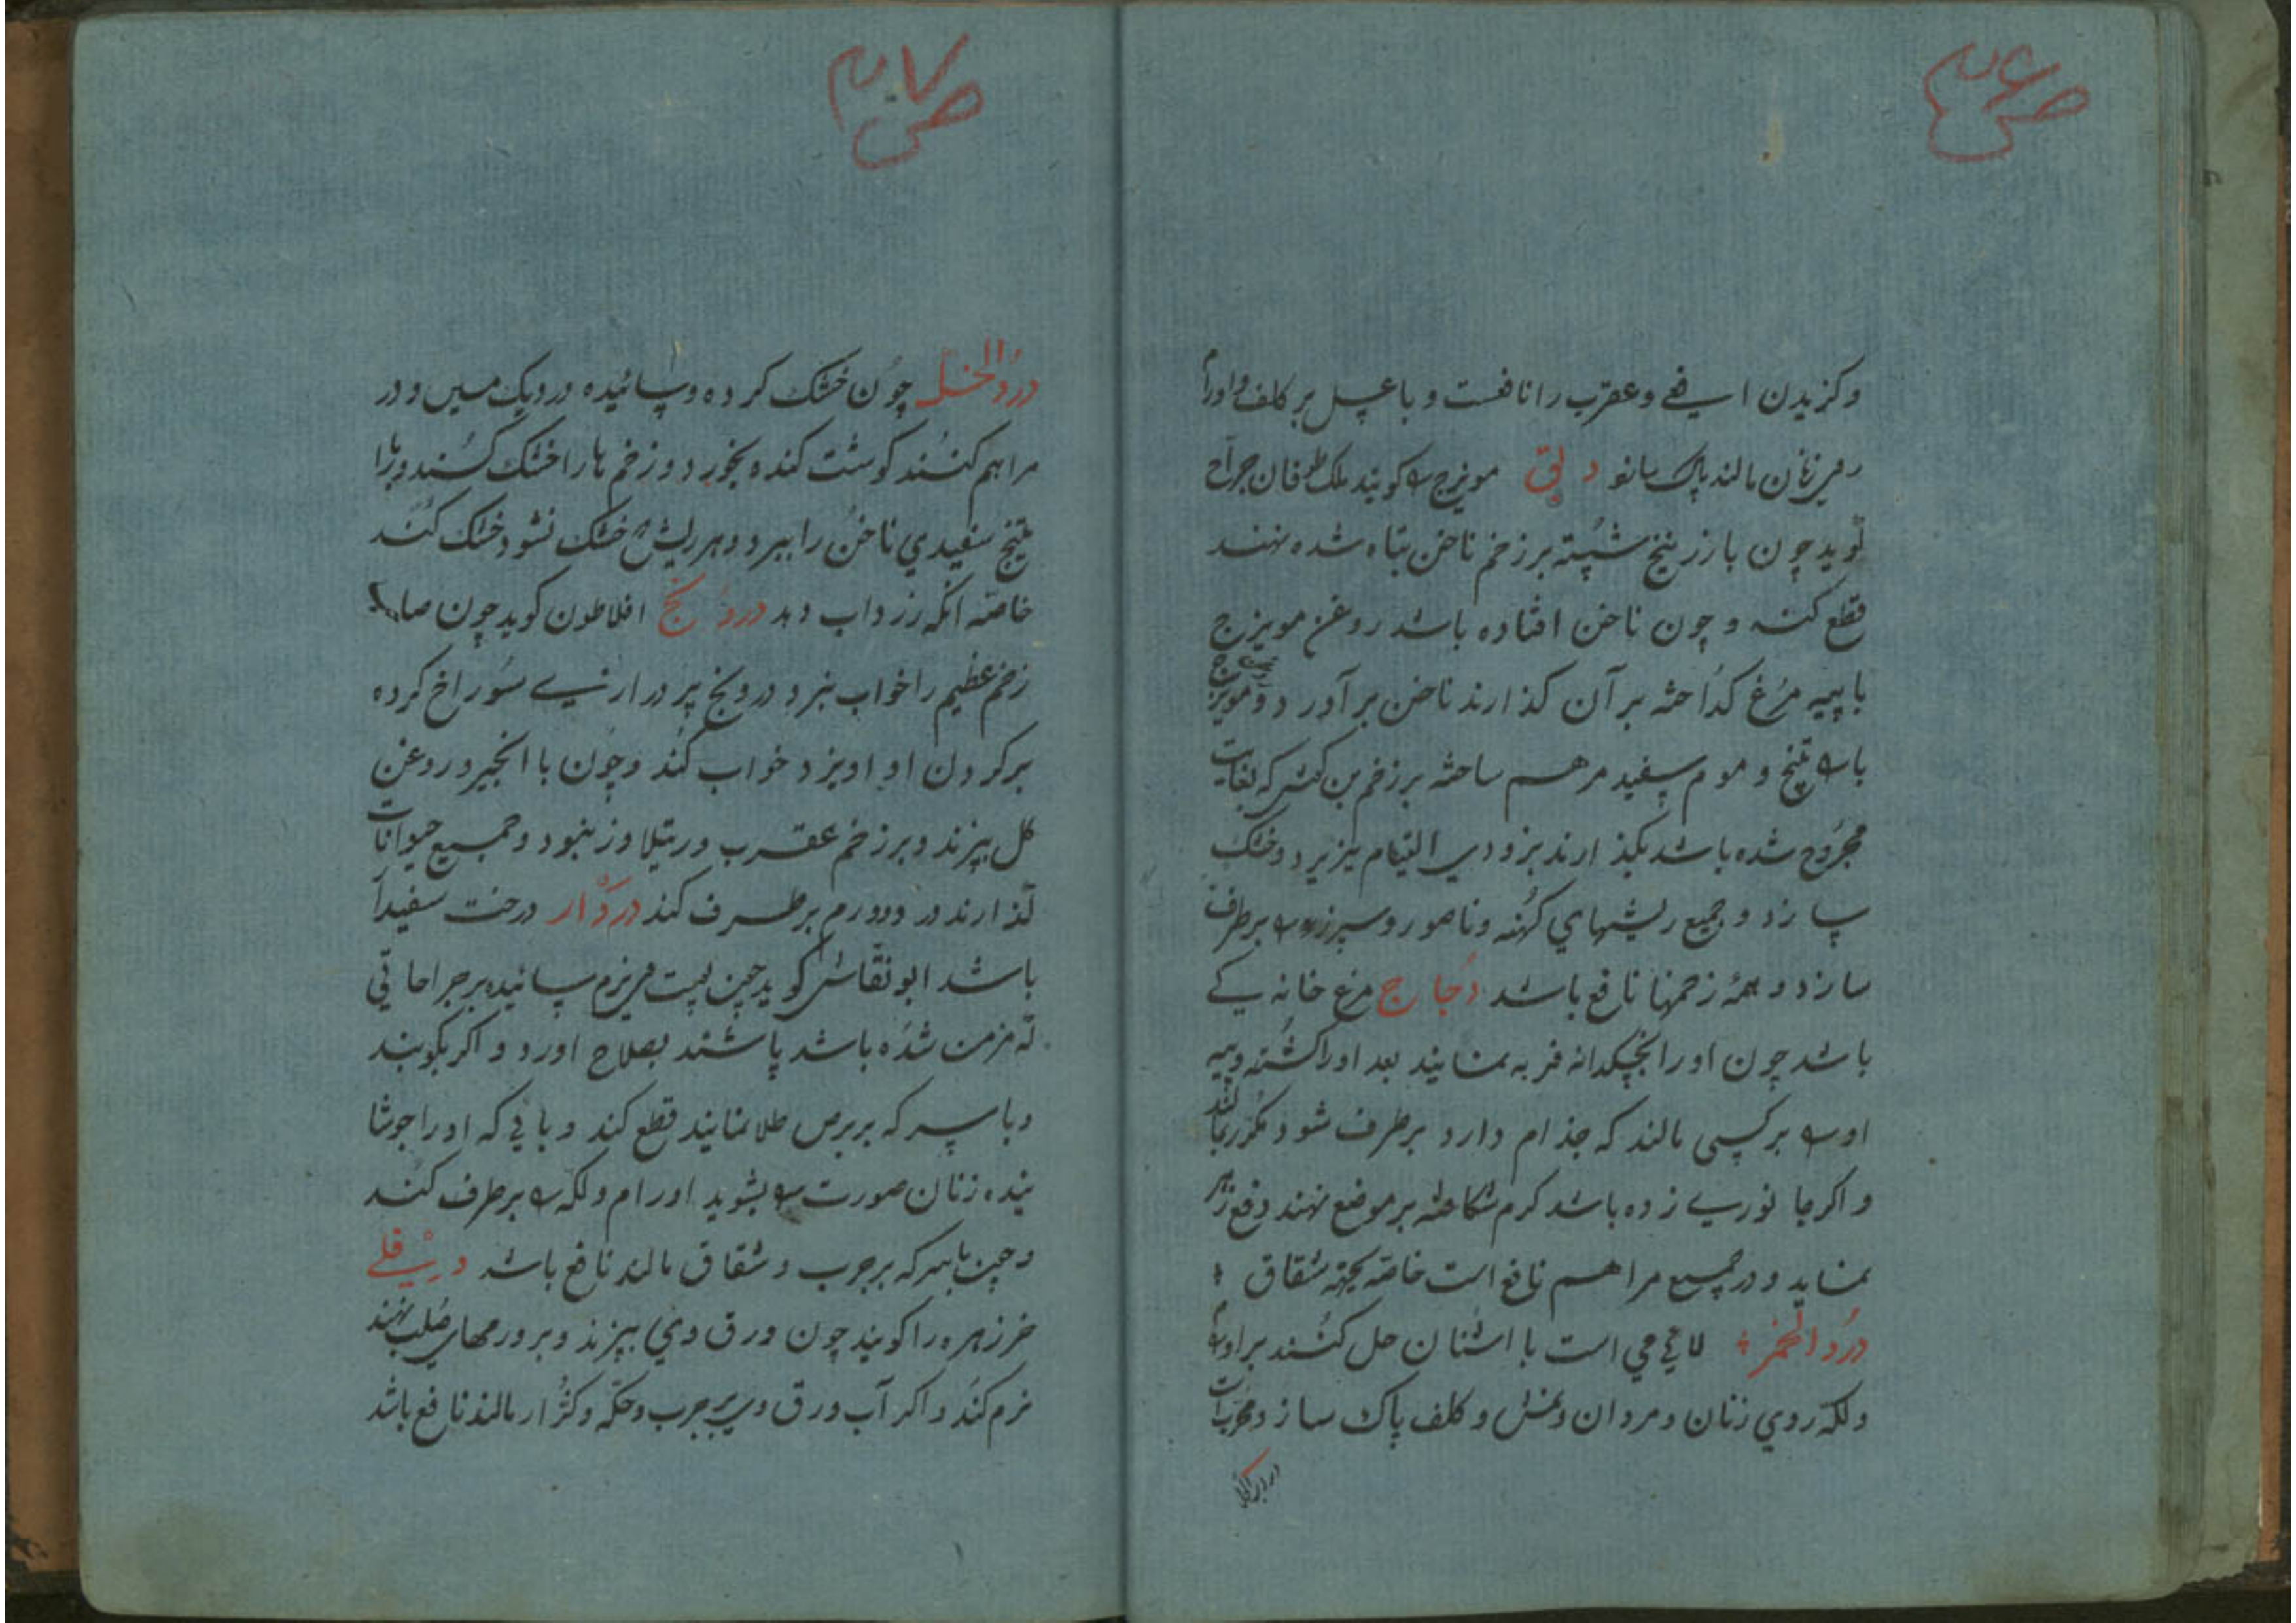 ص ۴۶
وکزیدن افعی وعقرب را نافعست و با عسل بر کلف واورام
مالند پاک سازد دبق مویزج را کویند ملک طوفان جراح
کوید چون با زرنیخ شسته بر زخم ناخن تباه شده نهند
قطع کند و چون ناخن افتاده باشد روغن مویزج
با پیه مرغ کداخته بر آن کذارند ناخن برآورد و مویزج
و موم سفید مرهم ساخته بر زخم بن که بغایت
مجروح شده باشد بکذارند بزودی التیام پزیرد وخشک
سازد و جمیع ریشهای کهنه وناصور و را برطرف
سازد و همهٔ زخمها نافع باشد دجاج مرغ خانه کی
باشد چون او را فربه نمایند بعد اورا کشته وپیه
او را بر کسی مالند که جذام دارد برطرف شود مکرر
و اکر جانوری زده باشد کرم شکافته بر موضع نهند دفع زهر
نماید و در جمیع مراهم نافع است خاصه بجهته شقاق
درد الخمر لای می است با اشنان حل کنند بر اورام
ولکه روی زنان و مردان ونمش و کلف پاک سازد ومجربات
ص ۴۷
درد الخل چون خشک کرده وسائیده در دیک مسین و در
مراهم کنند کوشت کنده بخورد و زخم ها را خشک کند وبا
سفیدی ناخن را ببرد وهر ریش خشک نشود خشک کند
خاصه انکه زرداب دهد درونج افلاطون کوید چون صاحب
زخم عظیم را خواب نبرد درونج پر در ارنبی سوراخ کرده
برکردن او اویزد خواب کند وچون با انجیر و روغن
کل بپزند و بر زخم عقرب و رتیلا وزنبور و جمیع حیوانات
کذارند درد وورم برطرف کند دردار درخت سفیدار
باشد ابو نقاش کوید چون سائیده بر جراحاتی
که مزمن شده باشد پاشند بصلاح اورد و اکر بکوبند
وبا سرکه بر برص طلا نمایند قطع کند و بآبی که اورا جوشا
نیده زنان صورت را بشوید اورام ولکه را برطرف کند
و چون با سرکه بر جرب و شقاق مالند نافع باشد دفلی
خرزهره را کویند چون ورق وی بپزند و بر ورمهای صلب نهند
نرم کند و اکر آب ورق وی بر جرب وحکه مالند نافع باشد